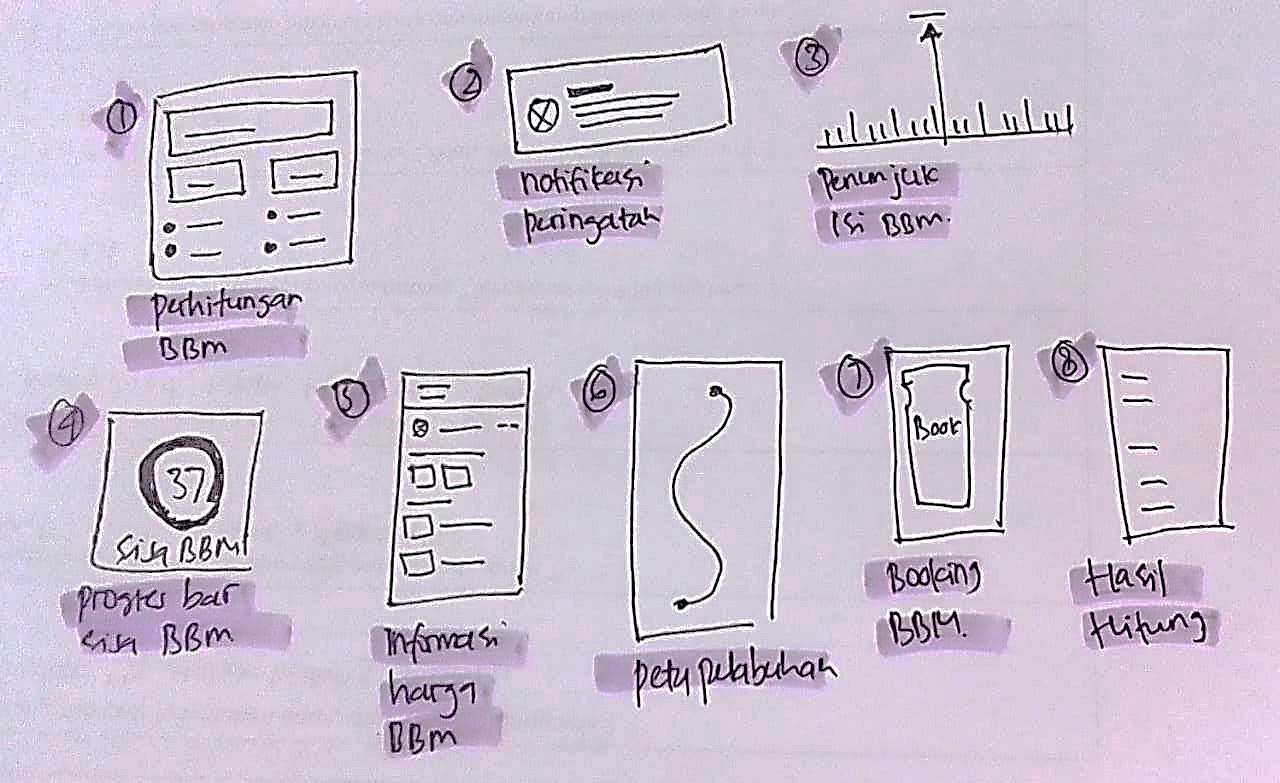 1
perhitungan
BBM
2
notifikasi
peringatan
3
Penunjuk
Isi BBM.
4
37
sisa BBM
progres bar
sisa BBM
5
Informasi
harga
BBM
6
peta pelabuhan
7
Book
Booking
BBM.
8
Hasil
Hitung